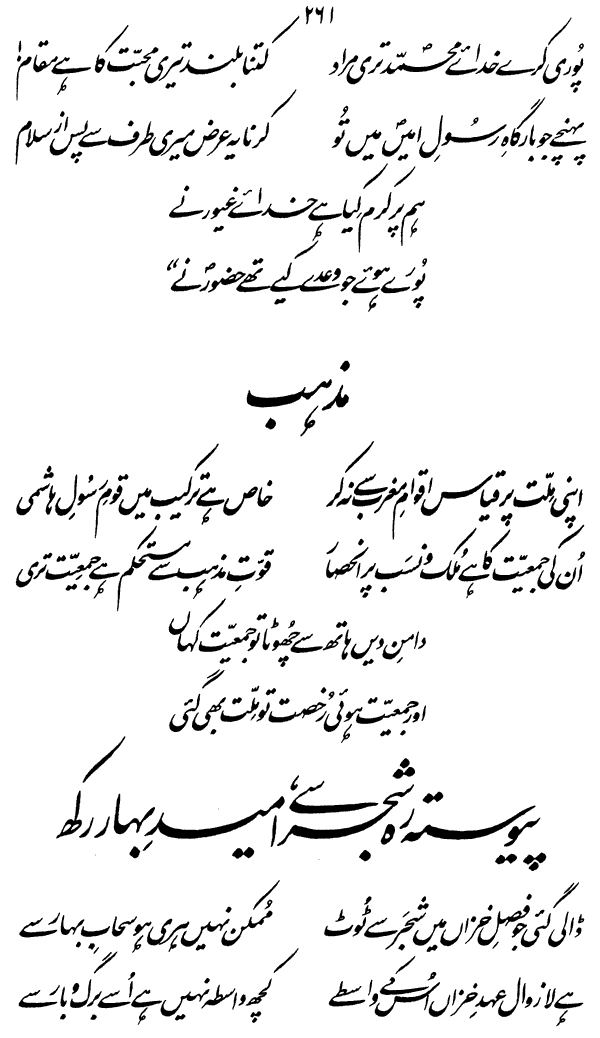 ۲۶۱
پُوری کرے خدائے محمدؐ تری مراد کتنا بلند تیری محبّت کا ہے مقام!
پہنچے جو بارگاہِ رسُولِ امیںؐ میں تُو کرنا یہ عرض میری طرف سے پس از سلام
ہم پر کرم کِیا ہے خدائے غیور نے
پُورے ہوئے جو وعدے کیے تھے حضورؐ نے“
مذہب
اپنی مِلّت پر قیاس اقوامِ مغرب سے نہ کر خاص ہے ترکیب میں قومِ رسُولِ ہاشمی
اُن کی جمعیّت کا ہے مُلک و نسَب پر انحصار قوّتِ مذہب سے مستحکم ہے جمعیّت تری
دامنِ دیں ہاتھ سے چھُوٹا تو جمعیّت کہاں
اور جمعیّت ہوئی رُخصت تو مِلّت بھی گئی
پیوستہ رہ شجر سے، امیدِ بہار رکھ
ڈالی گئی جو فصلِ خزاں میں شجَر سے ٹُوٹ مُمکن نہیں ہری ہو سحابِ بہار سے
ہے لازوال عہدِ خزاں اُس کے واسطے کچھ واسطہ نہیں ہے اُسے برگ و بار سے